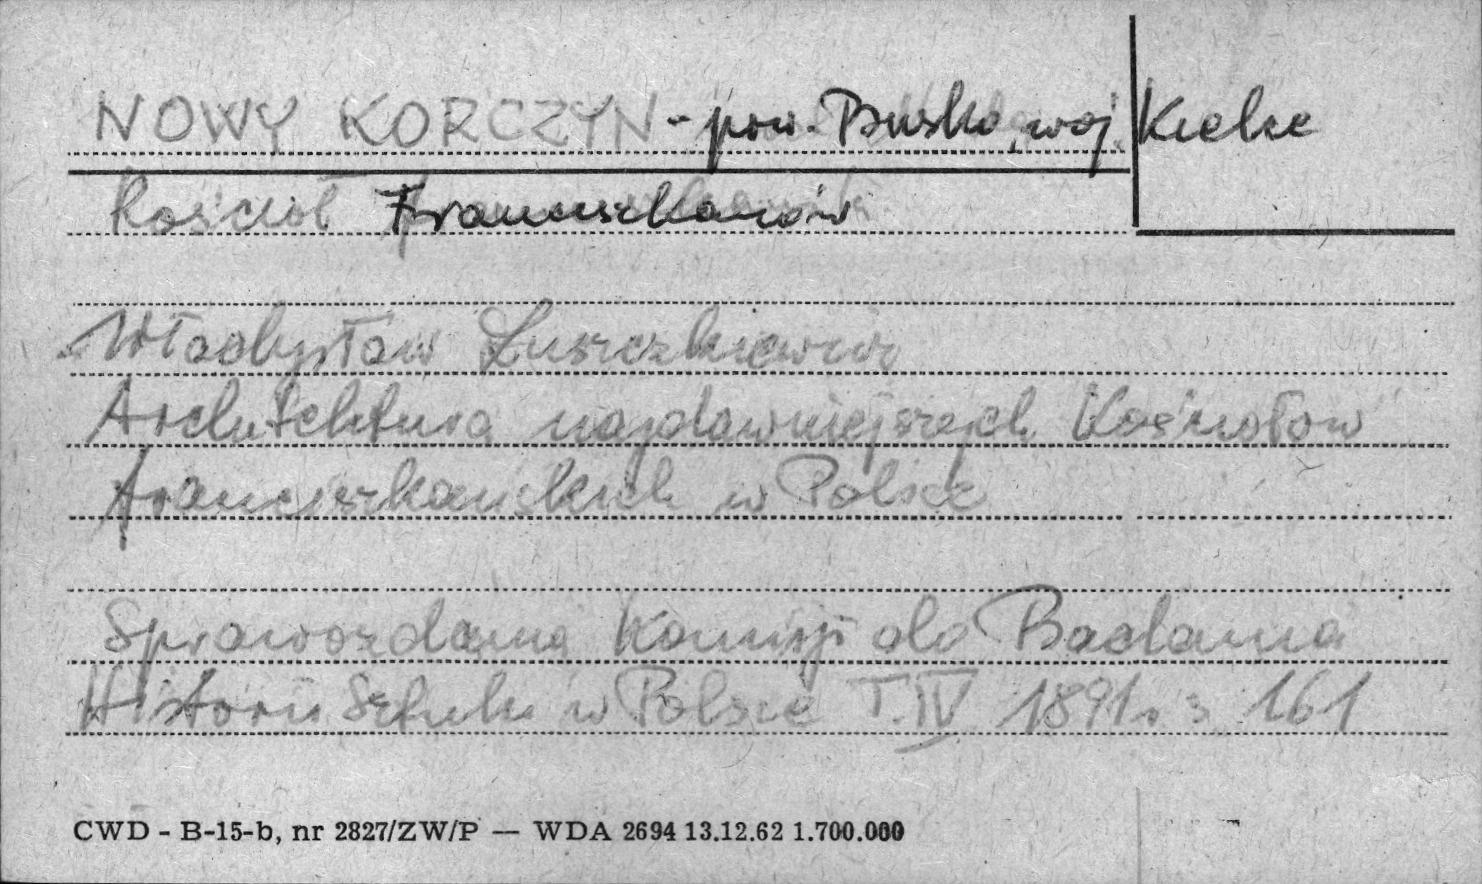 NOWY KORCZYN - pow. Busko, woj. Kielce
Kościół Franciszkanów
Władysław Łuszczkiewicz
Architektura najdawniejszych Kościołów
franciszkańskich w Polsce
Sprawozdania Komisji do Badania
Historii Sztuki w Polsce T. IV 1891 r. s. 161
CWD - B-15-b, nr 2827/ZW/P — WDA 2694 13.12.62 1.700.000